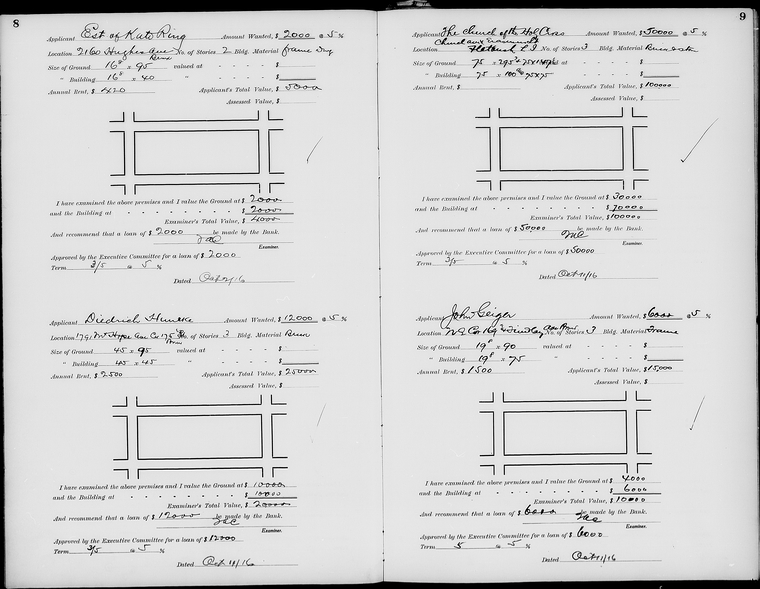 8
Applicant Est of Kate Ring Amount Wanted, $ 2000 @ 5 %
Location 2160 Hughes Ave No. of Stories 2 Bldg. Material frame
Bronx
Size of Ground 16⁸ x 95 valued at - - - - $
" Building 16⁸ x 40 " - - - - $
Annual Rent, $ 420 Applicant's Total Value, $ 5000
Assessed Value, $
I have examined the above premises and I value the Ground at $ 2000
and the Building at - - - - - - - - $ 2000
Examiner's Total Value, $ 4000
And recommend that a loan of $ 2000 be made by the Bank.
Examiner.
Approved by the Executive Committee for a loan of $ 2000
Term 3/5 @ 5 %
Dated Oct /16
Applicant Diedrich Amount Wanted, $ 12000 @ 5 %
Location 1791 Mt Hope Ave Co 175 No. of Stories 3 Bldg. Material
Bronx
Size of Ground 45 x 95 valued at - - - - $
" Building 45 x 45 " - - - - $
Annual Rent, $ 2500 Applicant's Total Value, $ 25000
Assessed Value, $
I have examined the above premises and I value the Ground at $ 10000
and the Building at - - - - - - - - $ 10000
Examiner's Total Value, $ 20000
And recommend that a loan of $ 12000 be made by the Bank.
Examiner.
Approved by the Executive Committee for a loan of $ 12000
Term 3/5 @ 5 %
Dated Oct 11/16
9
Applicant The Church of the Holy Cross Amount Wanted, $ 50000 @ 5 %
Church and
Location Flatbush L.I. No. of Stories 3 Bldg. Material
Size of Ground 75 x valued at - - $
" Building 75 x 100 75x75 - - - - $
Annual Rent, $ Applicant's Total Value, $ 100000
Assessed Value, $
I have examined the above premises and I value the Ground at $ 30000
and the Building at - - - - - - - - $ 70000
Examiner's Total Value, $ 100000
And recommend that a loan of $ 50000 be made by the Bank.
Examiner.
Approved by the Executive Committee for a loan of $ 50000
Term 3/5 @ 5 %
Dated Oct 11/16
Applicant John Geiger Amount Wanted, $ 6000 @ 5 %
Location No. of Stories 3 Bldg. Material Frame
Size of Ground 19⁸ x 90 valued at - - - - $
" Building 19⁸ x 75 " - - - - $
Annual Rent, $ 1500 Applicant's Total Value, $ 15,000
Assessed Value, $
I have examined the above premises and I value the Ground at $ 4000
and the Building at - - - - - - - - $ 6000
Examiner's Total Value, $ 10000
And recommend that a loan of $ 6000 be made by the Bank.
Examiner.
Approved by the Executive Committee for a loan of $ 6000
Term 5 @ 5 %
Dated Oct 11/16